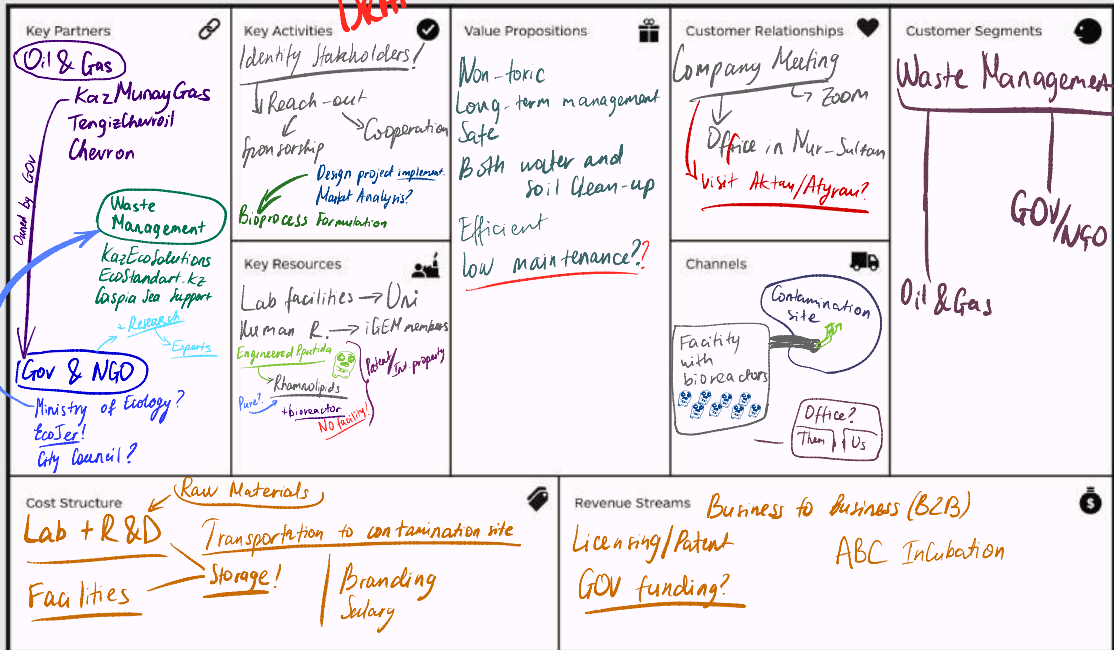 Key Partners
Oil & Gas
KazMunayGas
TengizChevroil
Chevron
Owned by GOV
Waste
Management
KazEcoSolutions
EcoStandart.kz
Caspia Sea Support
+ Research
Experts
Gov & NGO
Ministry of Ecology?
EcoJer!
City Council?
Key Activities
Identify Stakeholders!
Reach-out
Cooperation
Sponsorship
Design project implement.
Market Analysis?
Bioprocess Formulation
Key Resources
Lab facilities → Uni
Human R. → iGEM members
Engineered P.putida
Rhamnolipids
Pure?
+bioreactor
NO facility!
Patent/
Int. property
Value Propositions
Non-toxic
Long-term management
Safe
Both water and
soil Clean-up
Efficient
low maintenance??
Customer Relationships
Company Meeting
Zoom
Office in Nur-Sultan
Visit Aktau/Atyrau?
Channels
Contamination
site
Facility
with
bioreactors
Office?
Them
Us
Customer Segments
Waste Management
GOV/NGO
Oil & Gas
Cost Structure
Raw Materials
Lab + R&D
Transportation to contamination site
Storage!
Facilities
Branding
Salary
Revenue Streams
Business to Business (B2B)
Licensing/Patent
ABC Incubation
GOV funding?